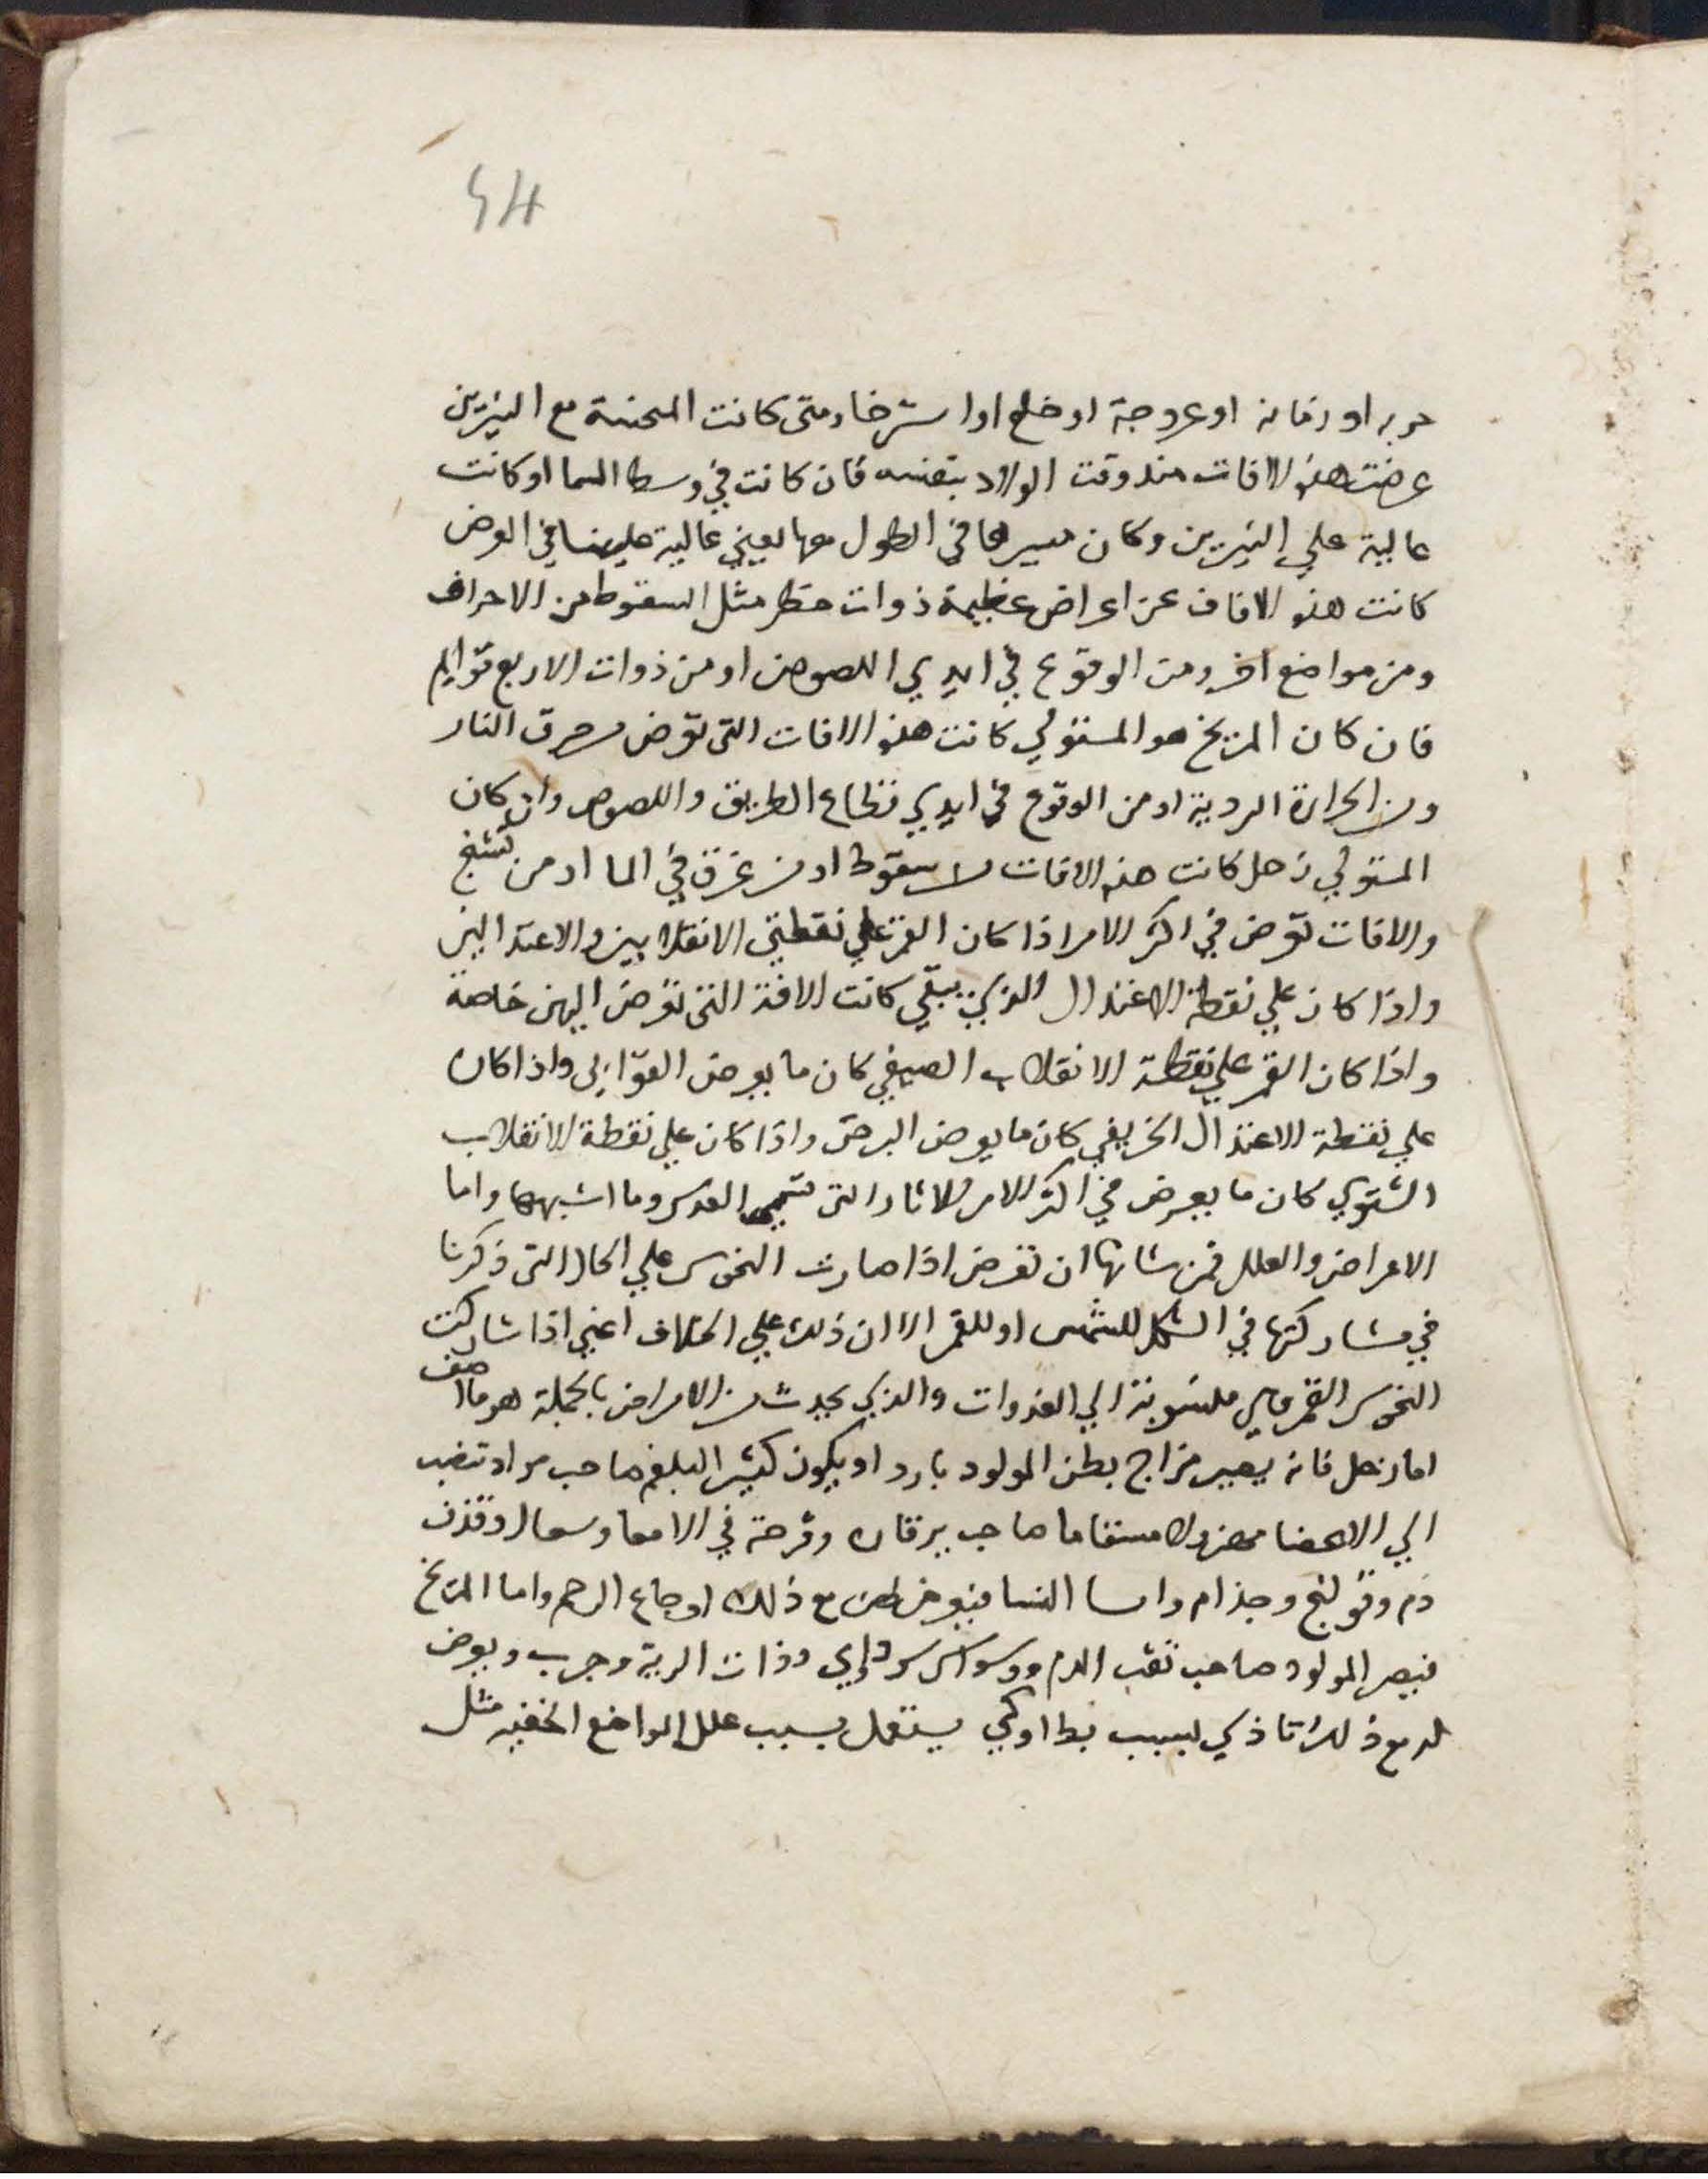 44
او زمانة او عروجة او خلع او استرخا ومتى كانت المحنة مع النيرين
عرضت هذه الافات منذ وقت الولاد بنفسه فان كانت في وسط السما او كانت
عالية علي النيرين وكان مسيرها في الطول معها يعني عالية عليهما في العرض
كانت هذه الافات عن اعراض عظيمة ذوات خطر مثل السقوط من الاجراف
ومن مواضع اخر ومن الوقوع في ايدي اللصوص او من ذوات الاربع قوايم
فان كان المريخ هو المستولي كانت هذه الافات التي تعرض من حرق النار
ومن الحرارة الردية او من الوقوع في ايدي قطاع الطريق واللصوص وان كان
المستولي زحل كانت هذه الافات من سقوط او من غرق في الما او من تشنج
والافات تعرض في اكثر الامر اذا كان القمر علي نقطتي الانقلابين والاعتدالين
واذا كان علي نقطة الاعتدال الذي يبقي كانت الافة التي تعرض البهق خاصة
واذا كان القمر علي نقطة الانقلاب الصيفي كان ما يعرض القوابي واذا كان
علي نقطة الاعتدال الخريفي كان ما يعرض البرص واذا كان علي نقطة الانقلاب
الشتوي كان ما يعرض في اكثر الامر الاثار التي تسمى العدس وما اشبهها واما
الامراض والعلل فمن شانها ان تعرض اذا صارت النحوس علي الحال التي ذكرنا
في مشاركتها في الشكل للشمس او للقمر الا ان ذلك علي الخلاف اعني اذا شاركت
النحوس القمر وهي منسوبة الي الغدوات والذي يحدث من الامراض بالجملة هو ما اصف
اما زحل فانه يصير مزاج بطن المولود باردا ويكون كثير البلغم صاحب مواد تنصب
الي الاعضا مهزولا مسقاما صاحب يرقان وقرحة في الامعا وسعال وقذف
دم وقولنج وجذام واما النسا فيعرض لهن مع ذلك اوجاع الرحم واما المريخ
فيصير المولود صاحب نفث الدم ووسواس سوداوي وذات الرية وجرب ويعرض
له مع ذلك تاذي بسبب بط او كي يستعمل بسبب علل المواضع الخفيه مثل